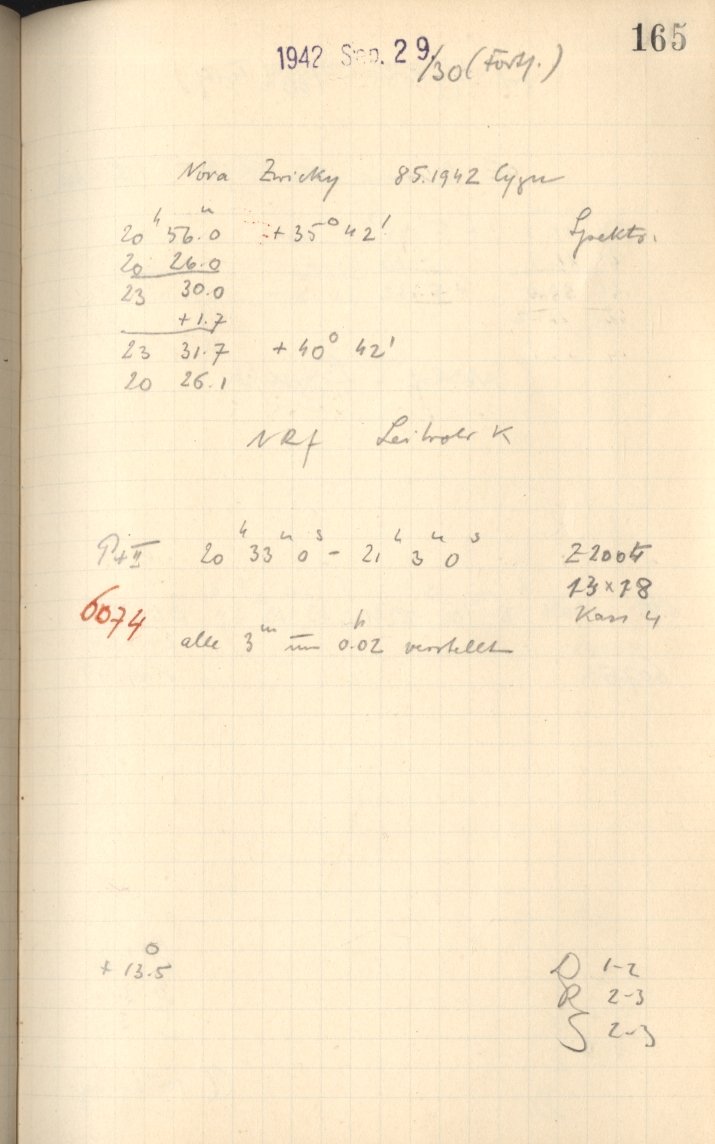 165
1942 Sep. 29./30 (Forts.)
Nova Zwicky 85.1942 Cygni
20ʰ 56ᵐ.0 +35° 42' Spektr.
20 26.0
23 30.0
+1.7
23 31.7 +40° 42'
20 26.1
NRf Leitrohr K
P+II 20ʰ 33ᵐ 0ˢ - 21ʰ 3ᵐ 0ˢ
13×18
6074 Kass 4
alle 3ᵐ um 0.02 verstellt
+13°.5
D 1-2
R 2-3
S 2-3